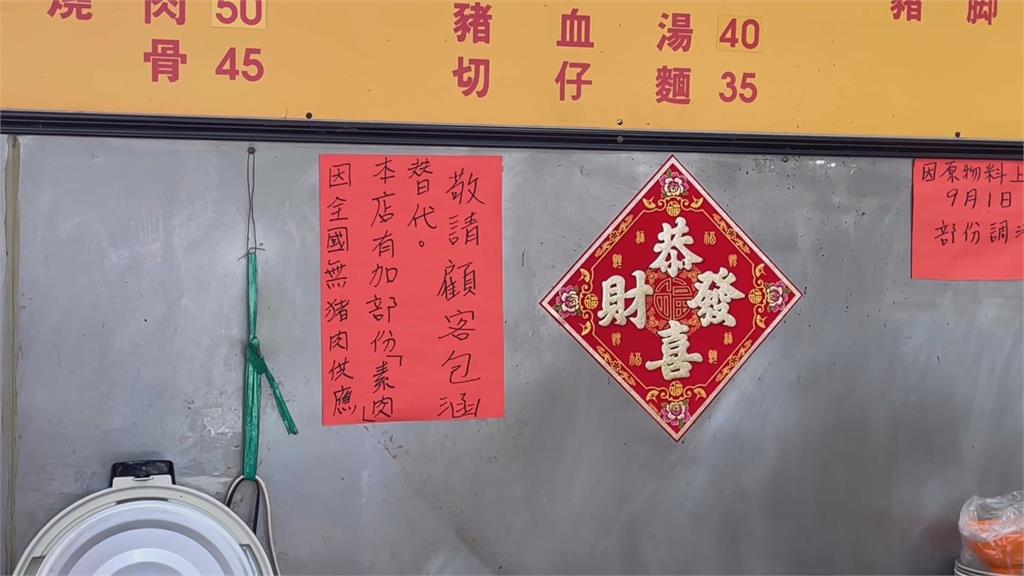 燒 肉 50
骨 45
豬 血 湯 40
切 仔 麵 35
豬 腳
敬請顧客包涵
替代。
本店有加部份「素肉」
因全國無豬肉供應
恭喜發財
因原物料上
9月1日
部份調